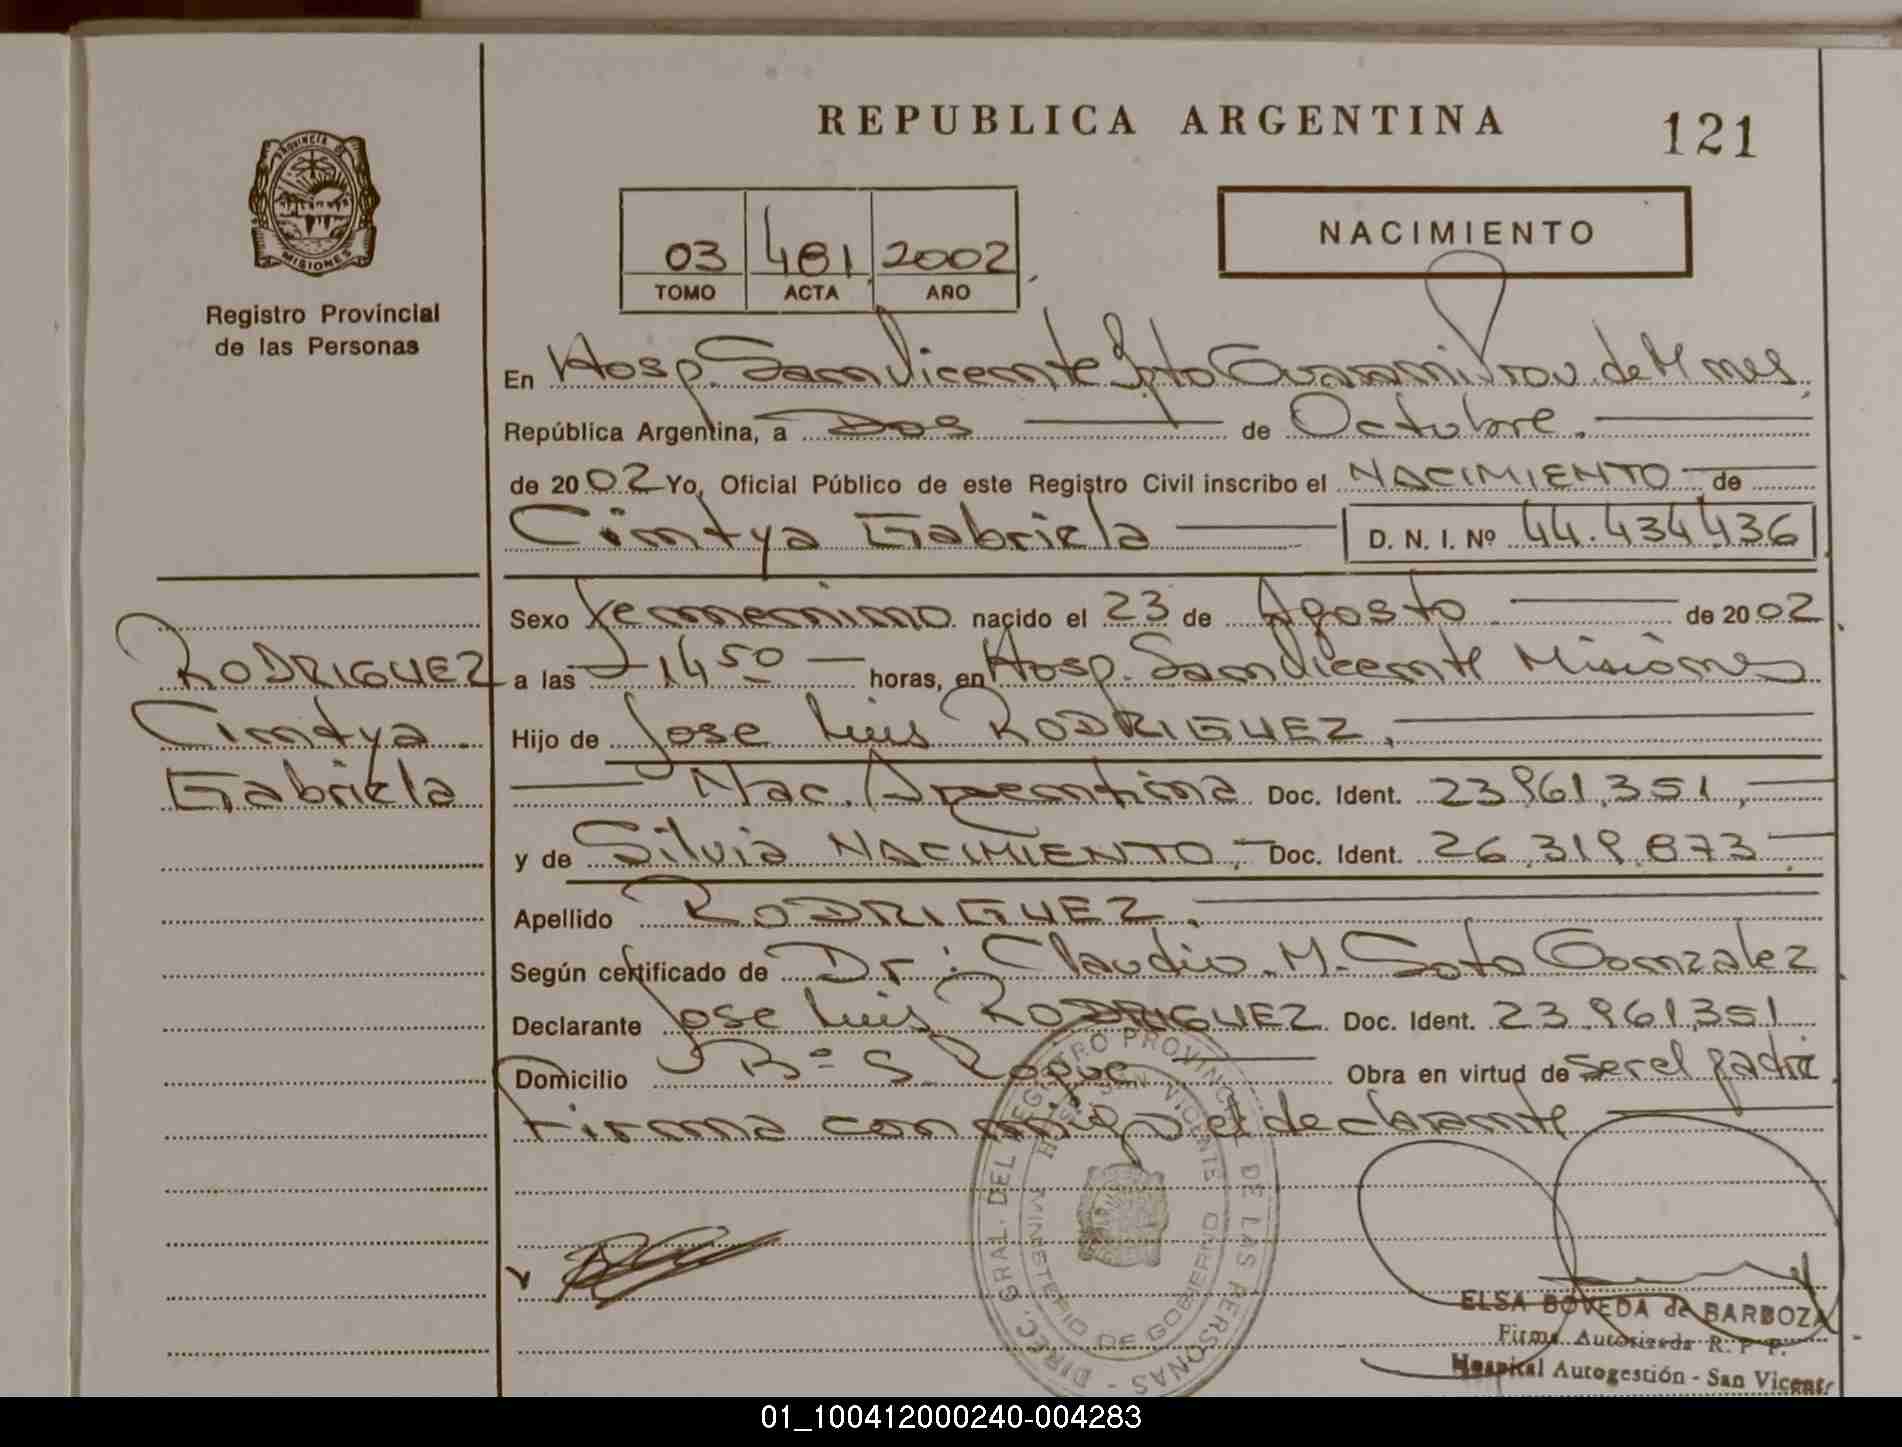 REPUBLICA ARGENTINA
121
PROVINCIA DE
MISIONES
Registro Provincial
de las Personas
03 481 2002
TOMO ACTA AÑO
NACIMIENTO
En Hosp. San Vicente Dpto Guarani Prov. de Mnes
República Argentina, a Dos de Octubre.
de 2002 Yo, Oficial Público de este Registro Civil inscribo el NACIMIENTO de
Cintya Gabriela D. N. I. Nº 44.434.436
Sexo femenino nacido el 23 de Agosto de 2002
RODRIGUEZ
Cintya
Gabriela
a las 14 50 horas, en Hosp. San Vicente Misiones
Hijo de Jose Luis RODRIGUEZ.
Nac. Argentina Doc. Ident. 23.961.351
y de Silvia NACIMIENTO, Doc. Ident. 26.319.873
Apellido RODRIGUEZ.
Según certificado de Dr: Claudio M. Soto Gonzalez
Declarante Jose Luis RODRIGUEZ Doc. Ident. 23.961.351
Domicilio Bº S. Roque Obra en virtud de ser el padre
Firma conmigo el declarante
DIREC. GRAL. DEL REGISTRO PROVINC. DE LAS PERSONAS
SAN VICENTE
MINISTERIO DE GOBIERNO
ELSA BOVEDA de BARBOZA
Firma Autorizada R. P. P.
Hospital Autogestión - San Vicente
01_100412000240-004283